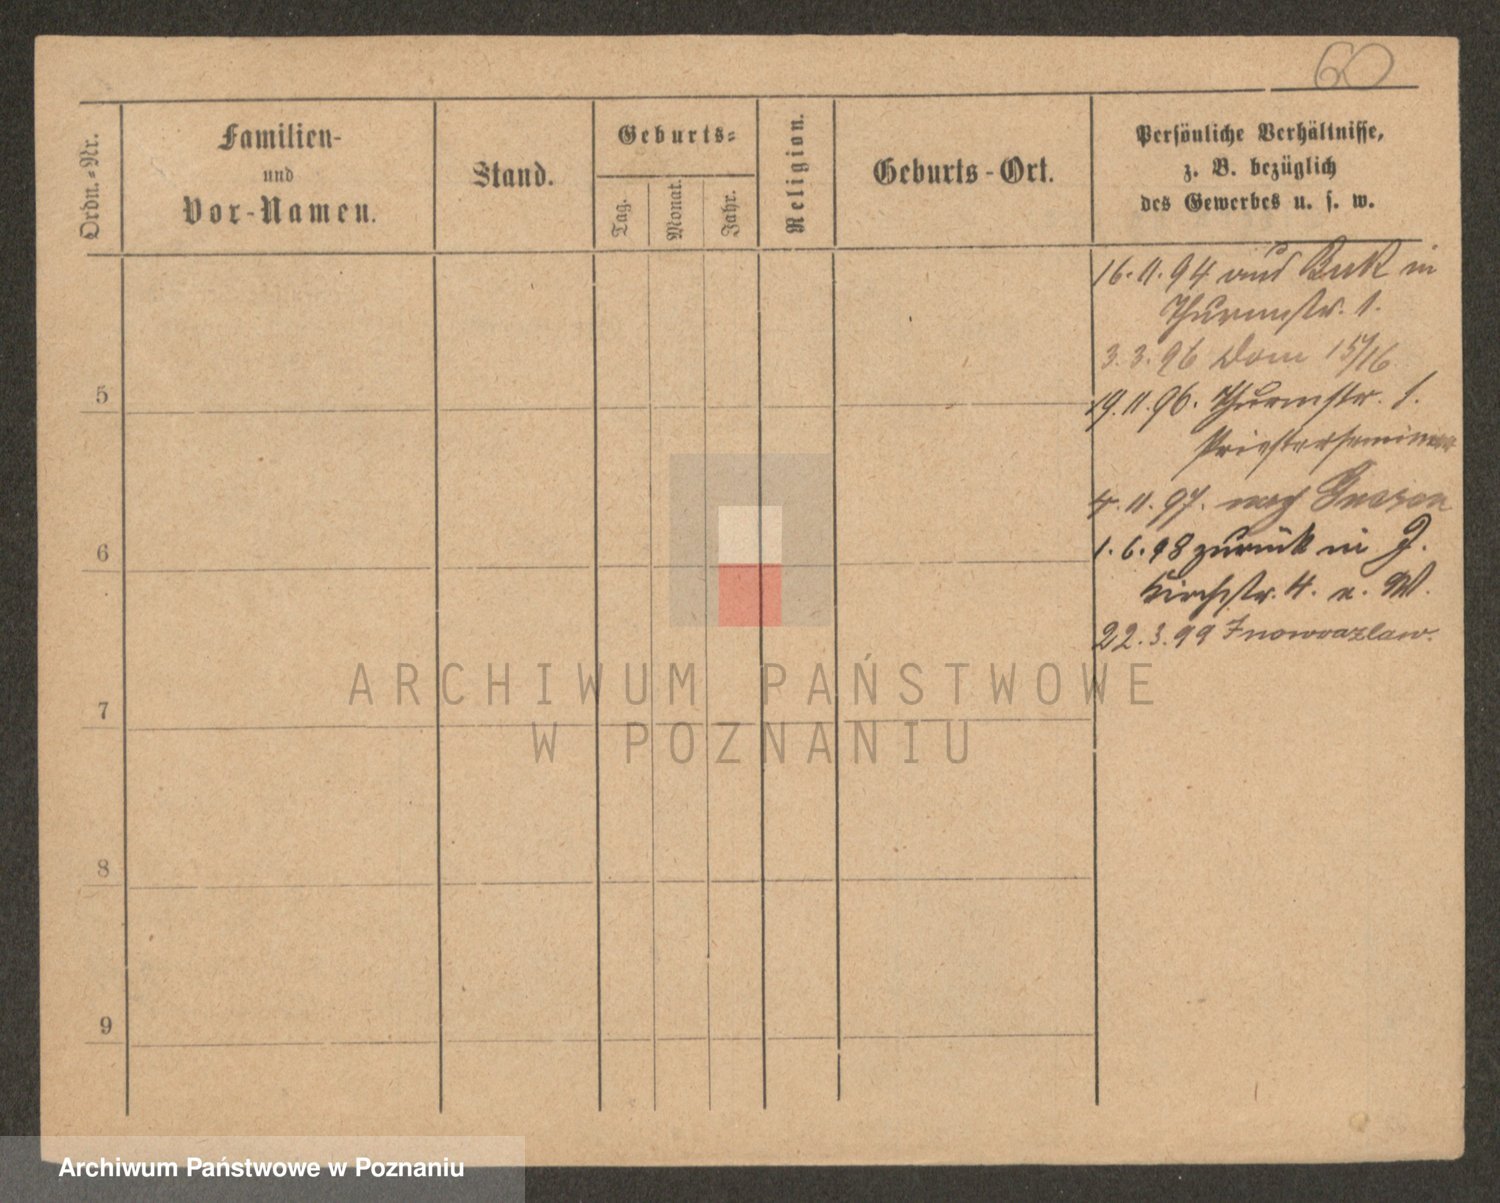 60
Ordn.-Nr.
Familien-
und
Vor-Namen.
Stand.
Geburts-
Tag.
Monat.
Jahr.
Religion.
Geburts-Ort.
Persönliche Verhältnisse,
z. B. bezüglich
des Gewerbes u. s. w.
16.11.94 aus Buk in
Thurmstr. 1.
3.3.96 Dom 15/16
5
19.11.96. Thurmstr. 1.
Priesterseminar
4.11.97. nach Gnesen
6
1.6.98 zurück in J.
Kirchstr. 4. a. W.
22.3.99 Inowrazlaw.
ARCHIWUM PAŃSTWOWE
W POZNANIU
7
8
9
Archiwum Państwowe w Poznaniu